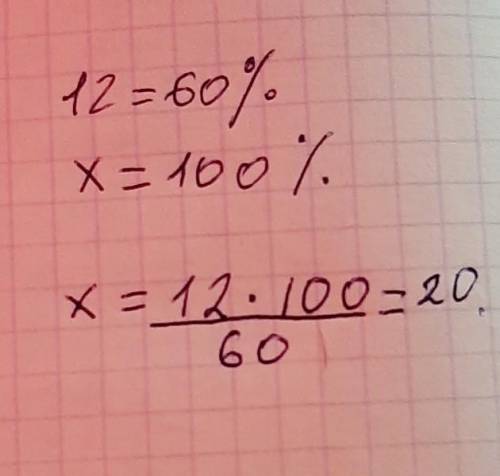 12 = 60%
x = 100%
x = 12 · 100 / 60 = 20.